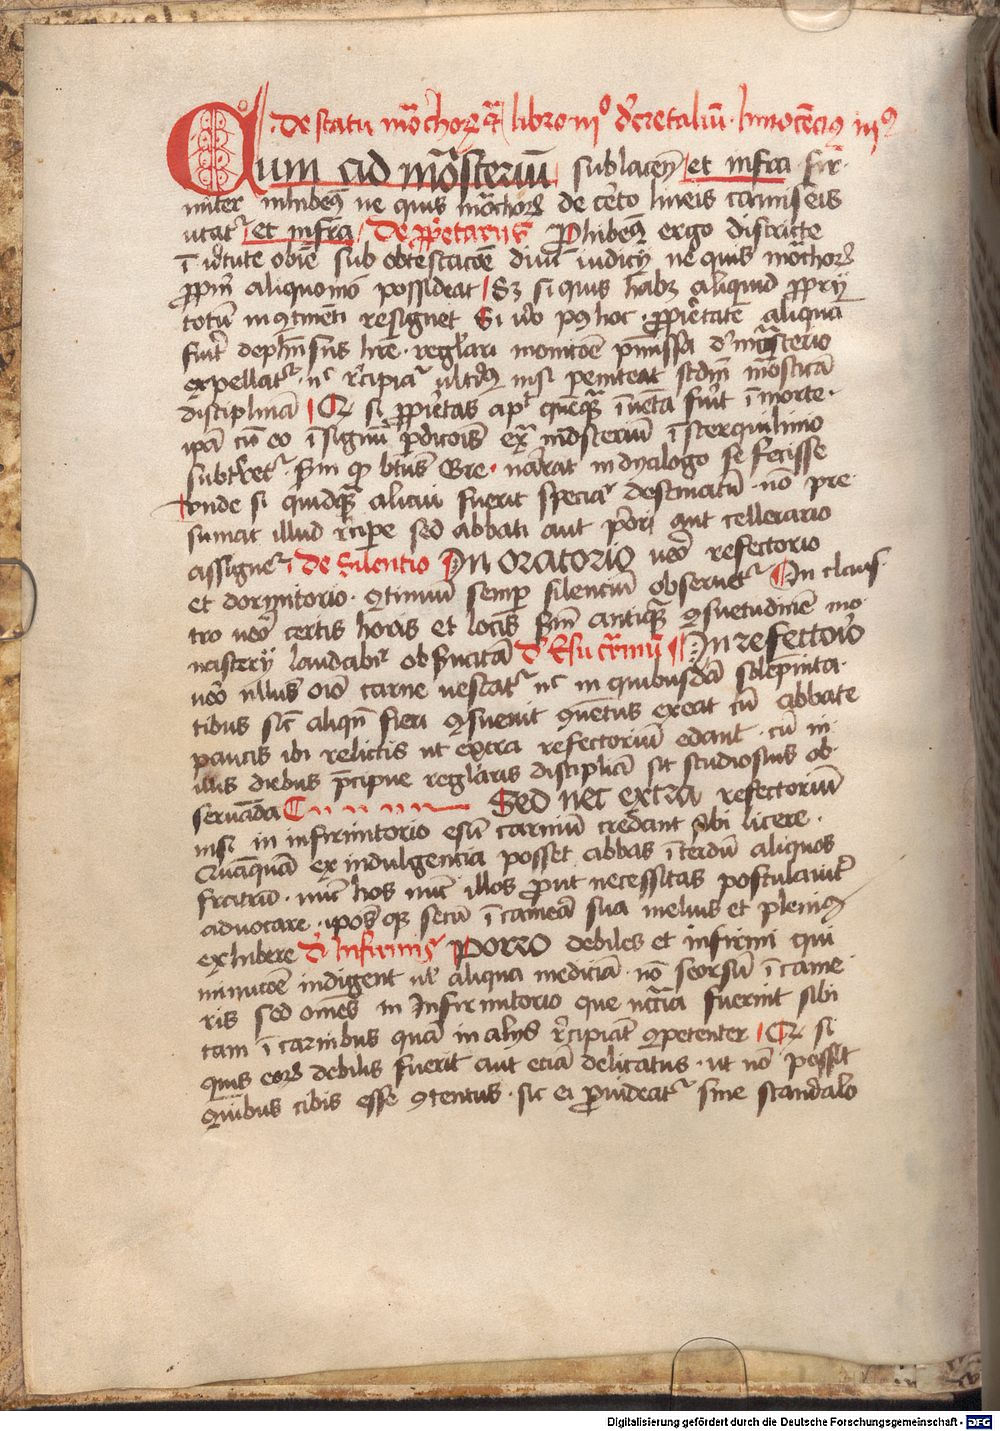 De statu mōchoꝝ libro iijº d'cretaliū Innocēciꝯ iijꝯ
Cum ad mōsteriū sublaceñ et infra fir
miter inhibemꝰ ne quis mōchoꝝ de cet'o lineis camiseis
utat' et infra De ꝓp'etariis Prohibemꝰ ergo districte
ī v'tute obiē sub obtestacōe divini iudicij ne quis mōchoꝝ
ꝓpriū aliquo mō possideat Sꝫ si quis habꝫ aliquid ꝓprij
totū in ꝯtinēti resignet Si v'o pꝰ hoc ꝓp'etate aliqua
fuit dephēsus regl'ari monicōe p'missa d' mōsterio
expellat' n̄c r'cipiat' ult'iꝰ nisi peniteat scd'm mōsticā
disciplinā Et si ꝓp'etas apᵈ quēq̄ īuēta fu'it ī morte
ipā cū eo ī signū p'dicōis ext̄ mōsteriū ī sterquilinio
subt'ret' Scd'm qꝫ btūs Gre narrat in dyalogo se fecisse
Unde si quidq̄ alicui fuerit specia' destinatū nō pre
sumat illud r'cipe sed abbati aut p'ori aut cellerario
assignet' De silentio In oratorio ueō refectorio
et dormitorio ꝯtinuū semp silenciū obseruet' In claus
tro ueō certis horis et locis scd'm antiq̄ ꝯsuetudinē mo
nasterij laudabil' obs'uatā d' Esu carniū In refectorio
ueō nllus oīo carne uescat' n̄c in quibusdā solēpnita
tibus sic̄ aliqn̄ fieri ꝯsueuit ꝯuētus exeat cū abbate
paucis ibi relictis ut extra refectoriū edant cū in
illis diebus p̄cipue regl'aris disciplīa sit studiosius ob
seruāda Sed nec extra refectoriū
nisi in infirmitorio esū carniū credant sibi licere
Quāquā ex indulgencia posset abbas īterdū aliquos
fratrū nūc hos nūc illos ꝓut necessitas postulau'it
aduocare ipos qꝫ secū ī camēa sua melius et pleniꝰ
exhibere d' Infirmis Porro debiles et infirmi qui
minucōe indigent ul' aliqua medicīa nō seorsū ī came
ris sed omēs in Infirmitorio que nccīa fuerint sibi
tam ī carnibus quā in alijs r'cipiāt ꝯpetenter Et si
quis eoꝝ debilis fuerit aut eciā delicatus ut nō possit
quibus cibis esse ꝯtentus sic ei ꝓuideat' sine scandalo
Digitalisierung gefördert durch die Deutsche Forschungsgemeinschaft - DFG